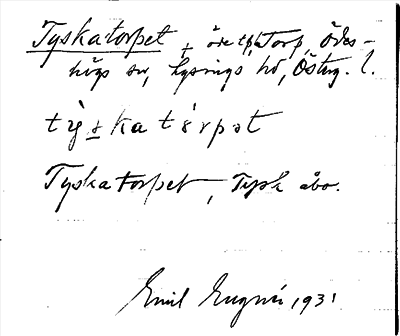 Tyskatorpet, öre tpl, Torp, Ödes-
högs sn, Lysings hd, Östg. l.
tỳska tɷrpət
Tyskatorpet, Tysk åbo.
Emil 1931